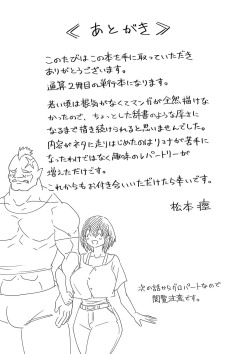 ≪あとがき≫
このたびはこの本を手に取っていただき
ありがとうございます。
通算2冊目の単行本になります。
若い頃は根気がなくてマンガが全然描けな
かったので、ちょっとした辞書のような厚さに
なるまで描き続けられると思いませんでした。
内容がネタに走りはじめたのはリョナが苦手に
なったわけではなく趣味のレパートリーが
増えただけです。
これからもお付き合いいただけたら幸いです。
松本
次の話からグロパートなので
閲覧注意です。